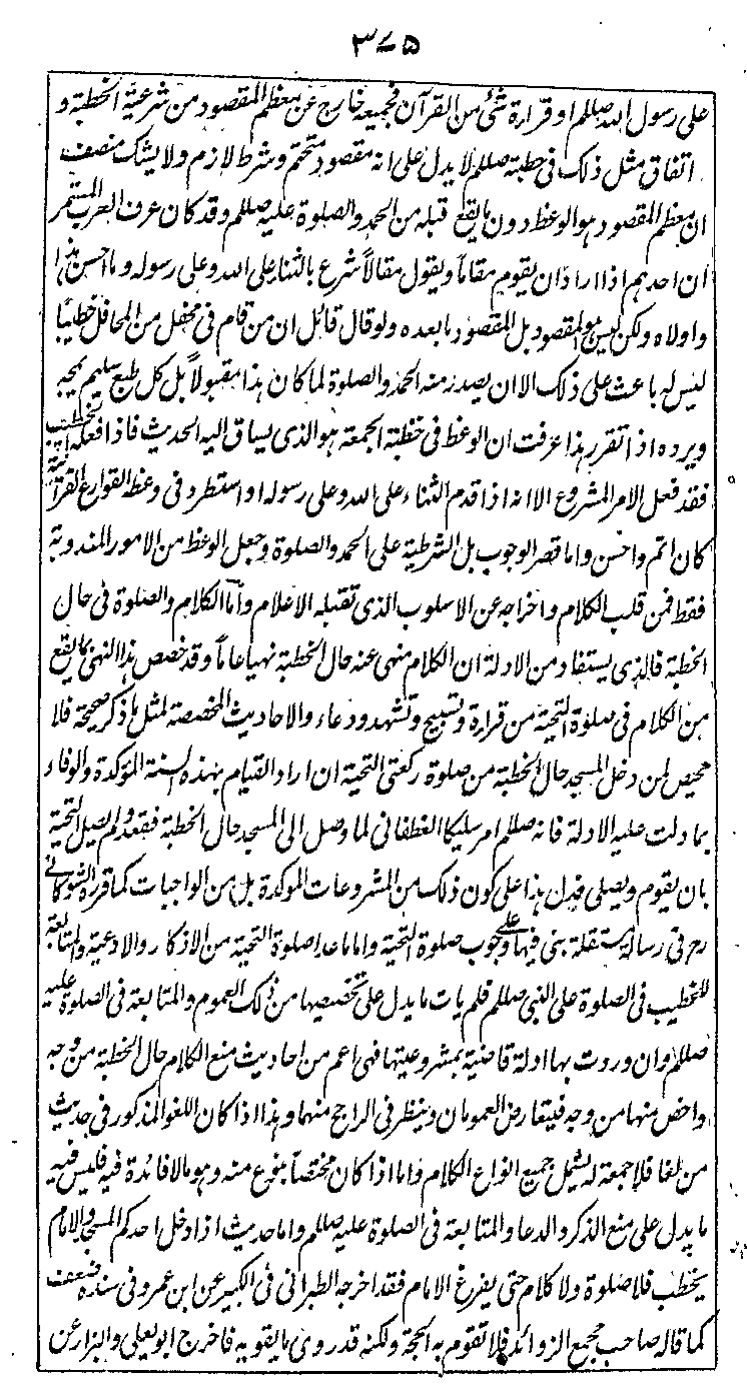 ٣٧٥
على رسول الله صللم او قراءة شئ من القرآن فجميعه خارج عن معظم المقصود من شرعية الخطبة و
اتفاق مثل ذلك فى خطبة صللم لا يدل على انه مقصود متحتم وشرط لازم ولا يشك منصف
ان معظم المقصود هو الوعظ دون ما يقع قبله من الحمد والصلوة عليه صللم وقد كان عرف العرب المستمر
ان احدهم اذا اراد ان يقوم مقاماً ويقول مقالاً شرع بالثناء على الله وعلى رسوله وما احسن هذا
واولاه ولكن ليس هو المقصود بل المقصود ما بعده ولو قال قائل ان من قام فى محفل من المحافل خطيبًا
ليس له باعث على ذلك الا ان يصدر منه الحمد والصلوة لما كان هذا مقبولاً بل كل طبع سليم يمجه
ويرده اذا تقرر هذا عرفت ان الوعظ فى خطبة الجمعة هو الذى يساق اليه الحديث فاذا فعله الخطيب
فقد فعل الامر المشروع الا انه اذا قدم الثناء على الله وعلى رسوله او استطرد فى وعظه القوارع القرآنية
كان اتم واحسن واما قصر الوجوب بل الشرطية على الحمد والصلوة وجعل الوعظ من الامور المندوبة
فقط فمن قلب الكلام واخراجه عن الاسلوب الذى تقبله الاعلام واما الكلام والصلوة فى حال
الخطبة فالذى يستفاد من الادلة ان الكلام منهى عنه حال الخطبة نهيا عاماً وقد خصص هذا النهى بما يقع
من الكلام فى صلوة التحية من قراءة وتسبيح وتشهد ودعاء والاحاديث المخصصة لمثل ما ذكر صحيحة فلا
محيص لمن دخل المسجد حال الخطبة من صلوة ركعتى التحية ان اراد القيام بهذه السنة المؤكدة والوفاء
بما دلت عليه الادلة فانه صللم امر سليكا الغطفانى لما وصل الى المسجد حال الخطبة فقعد ولم يصل التحية
بان يقوم ويصلى فدل هذا على كون ذلك من المشروعات الموكدة بل من الواجبات كما قرره الشوكانى
رح فى رسالة مستقلة بنى فيها على وجوب صلوة التحية واما ما عدا صلوة التحية من الاذكار والادعية والمتابعة
للخطيب فى الصلوة على النبى صللم فلم يات ما يدل على تخصيصها من ذلك العموم والمتابعة فى الصلوة عليه
صللم وان وردت بها ادلة قاضية بمشروعيتها فهى اعم من احاديث منع الكلام حال الخطبة من وجه
واخص منها من وجه فيتعارض العمومان وينظر فى الراجح منهما وهذا اذا كان اللغو المذكور فى حديث
من لغا فلا جمعة له يشمل جميع انواع الكلام واما اذا كان مختصاً بنوع منه وهو ما لا فائدة فيه فليس فيه
ما يدل على منع الذكر والدعا والمتابعة فى الصلوة عليه صللم واما حديث اذا دخل احدكم المسجد والامام
يخطب فلا صلوة ولا كلام حتى يفرغ الامام فقد اخرجه الطبرانى فى الكبير عن ابن عمر وفى سنده ضعف
كما قاله صاحب مجمع الزوائد فلا تقوم به الحجة ولكنه قد روى ما يقويه فاخرج ابو يعلى والبزار عن